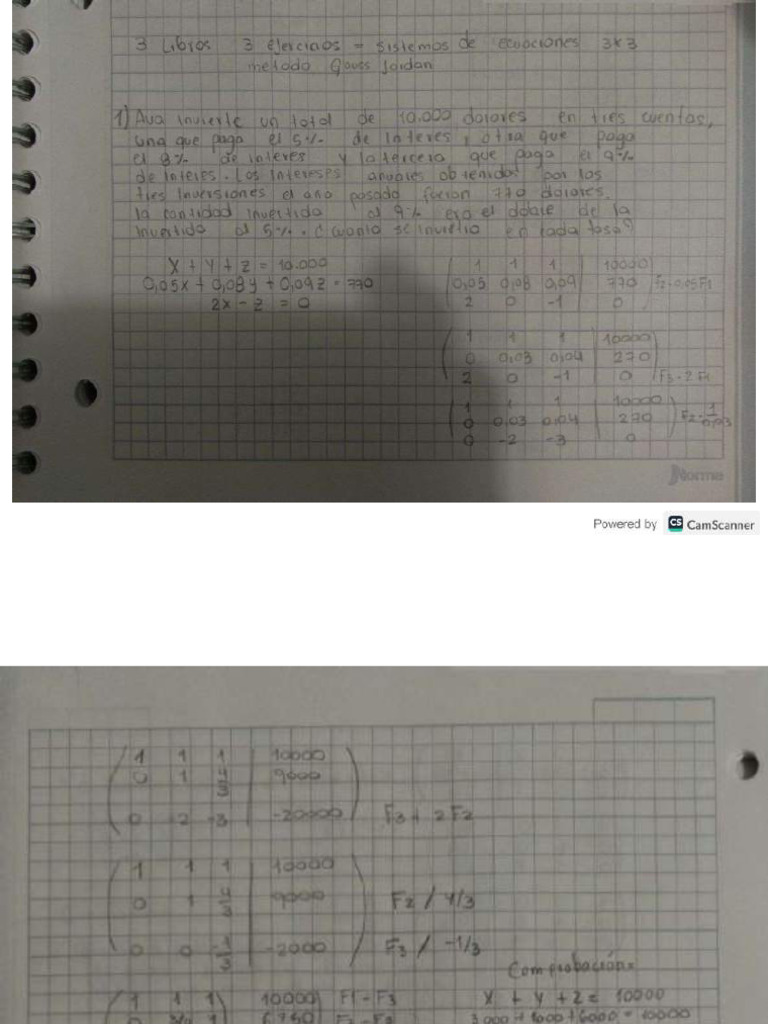 3 Libros 3 ejercicios = sistemas de ecuaciones 3x3
metodo Gauss Jordan
1) Ava invierte un total de 10.000 dolores en tres cuentas,
una que paga el 5% de interes, otra que paga
el 8% de interes y la tercera que paga el 9%
de interes. Los intereses anuales obtenidos por las
tres inversiones el año pasado fueron 770 dolores.
la cantidad invertida al 9% era el doble de la
invertida al 5%. ¿cuanto se invirtio en cada tasa?
x + y + z = 10.000
0,05x + 0,08y + 0,09z = 770
2x - z = 0
1 1 1 10000
0,05 0,08 0,09 770 F2-0,05F1
2 0 -1 0
1 1 1 10000
0 0,03 0,04 270
2 0 -1 0 F3-2F1
1 1 1 10000
0 0,03 0,04 270 F2·1/0,03
0 -2 -3 0
Norma
Powered by CS CamScanner
1 1 1 10000
0 1 4/3 9000
0 -2 -3 -20000 F3 + 2F2
1 1 1 10000
0 1 4/3 9000 F2 / 4/3
0 0 -1/3 -2000 F3 / -1/3
Comprobación:
1 1 1 10000 F1-F3
x + y + z = 10000
0 3/4 1 6750 F2-F3
3000+1000+6000 = 10000